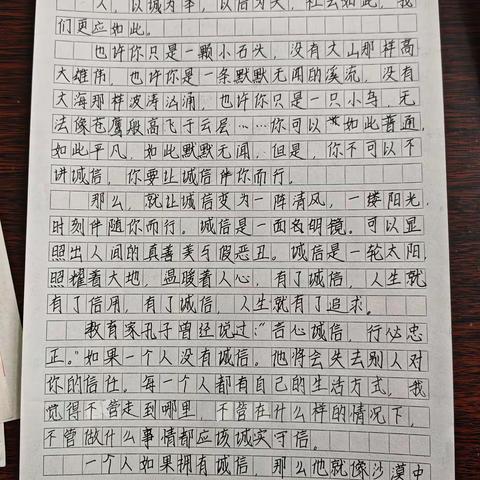 人，以诚为本，以信为天，社会如此，我
们更应如此。
也许你只是一颗小石头，没有大山那样高
大雄伟，也许你是一条默默无闻的溪流，没有
大海那样波涛汹涌，也许你只是一只小鸟，无
法像苍鹰般高飞于云层……你可以如此普通，
如此平凡，如此默默无闻，但是，你不可以不
讲诚信，你要让诚信伴你而行。
那么，就让诚信变为一阵清风，一缕阳光，
时刻伴随你而行。诚信是一面名明镜。可以显
照出人间的真善美与假恶丑。诚信是一轮太阳，
照耀着大地，温暖着人心，有了诚信，人生就
有了信用，有了诚信，人生就有了追求。
教育家孔子曾经说过："言必诚信，行必忠
正。"如果一个人没有诚信。他将会失去别人对
你的信任。每一个人都有自己的生活方式，我
觉得不管走到哪里，不管在什么样的情况下，
不管做什么事情都应该诚实守信。
一个人如果拥有诚信，那么他就像沙漠中